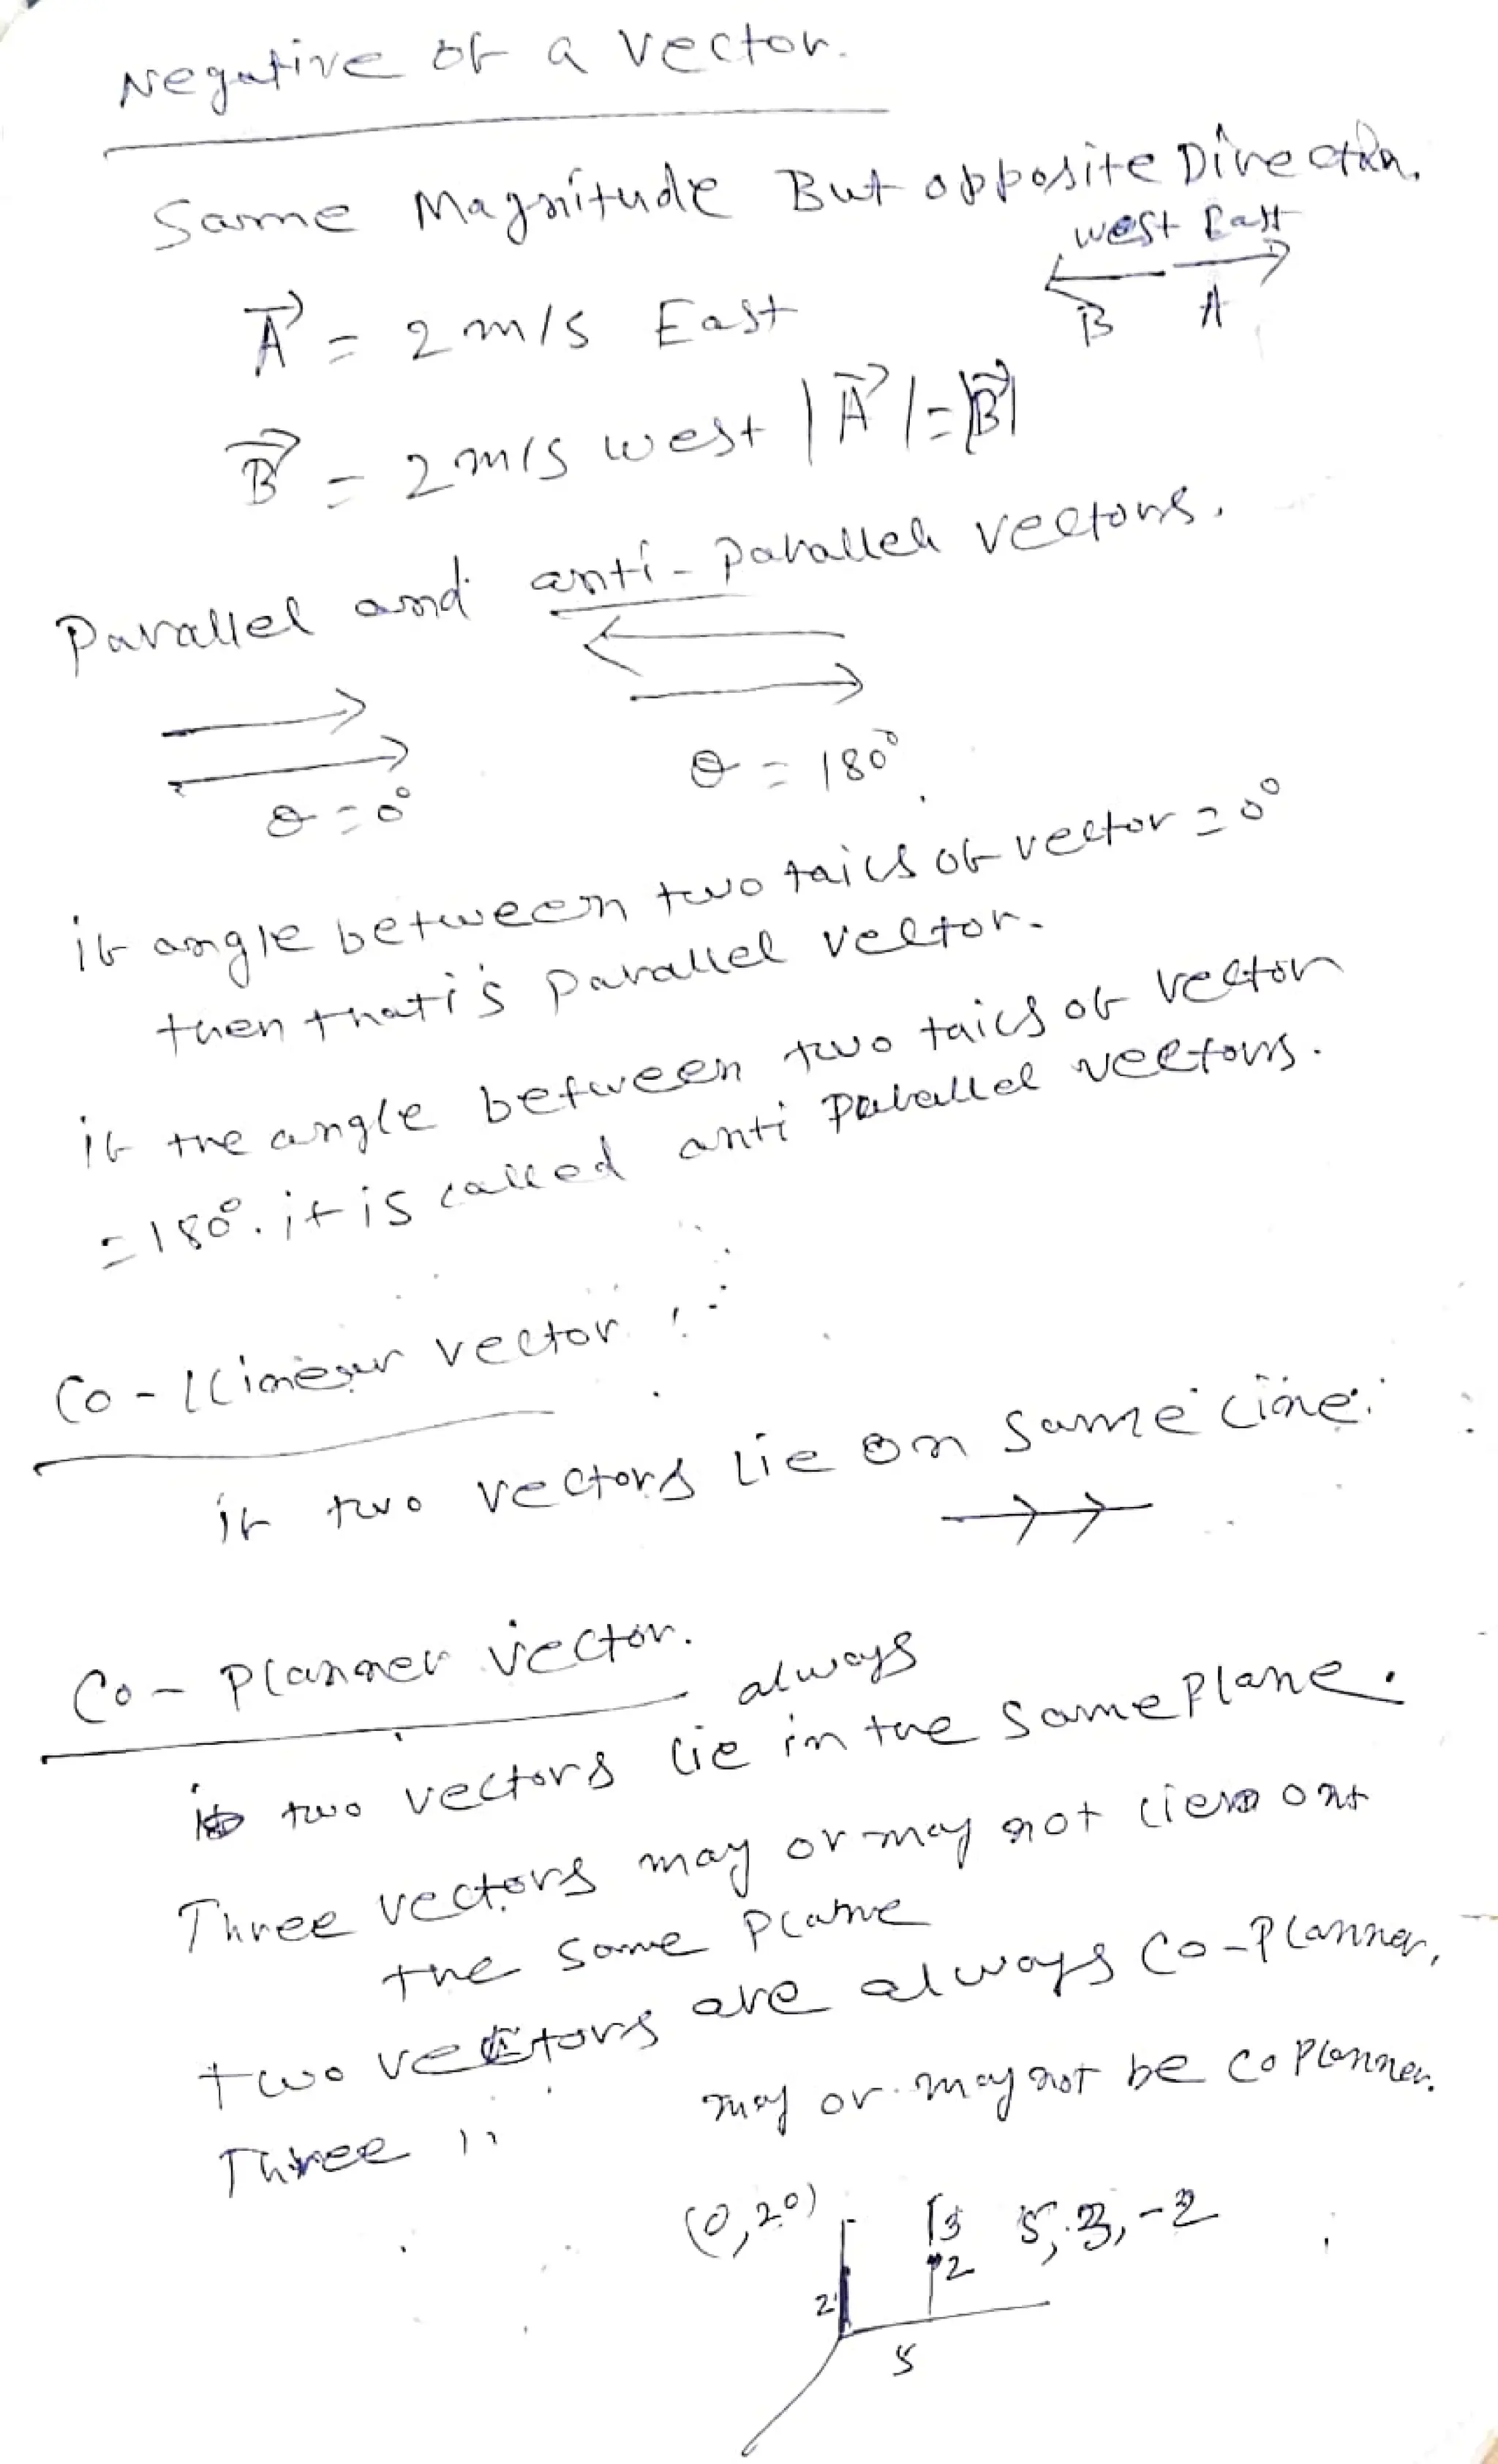 Negative of a vector.
Same Magnitude But opposite Direction.
west East
B A
A⃗ = 2 m/s East
B⃗ = 2 m/s west |A⃗| = |B⃗|
Parallel and anti-parallel vectors.
θ = 0° θ = 180°
if angle between two tails of vector = 0°
then that is parallel vector.
if the angle between two tails of vector
= 180°. it is called anti parallel vectors.
Co-llinear vector :
if two vectors lie on same line.
Co-Planner vector.
always
two vectors lie in the same plane.
Three vectors may or may not lie
the same plane
two vectors are always co-planner,
Three " may or may not be coplanner.
(0,2,0) 3 5, 3, -2
2
2
5